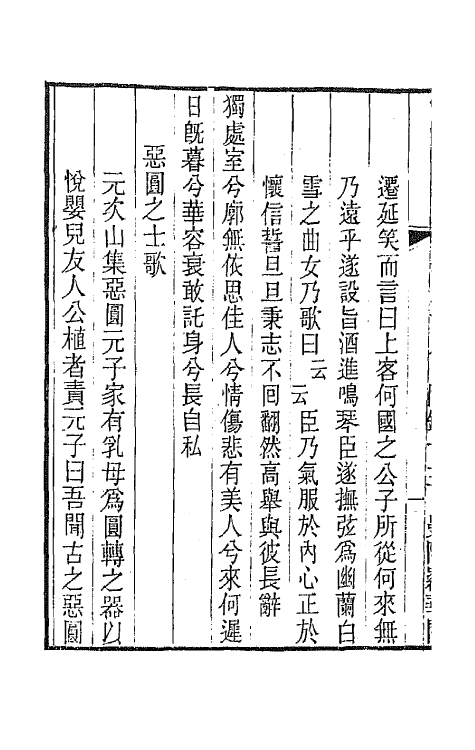 遷延笑而言曰上客何國之公子所從何來無
乃遠乎遂設旨酒進鳴琴臣遂撫弦爲幽蘭白
雪之曲女乃歌曰云云臣乃氣服於內心正於
懷信誓旦旦秉志不回翻然高舉與彼長辭
獨處室兮廓無依思佳人兮情傷悲有美人兮來何遲
日旣暮兮華容衰敢託身兮長自私
惡圓之士歌
元次山集惡圓元子家有乳母爲圓轉之器以
悅嬰兒友人公植者責元子曰吾聞古之惡圓